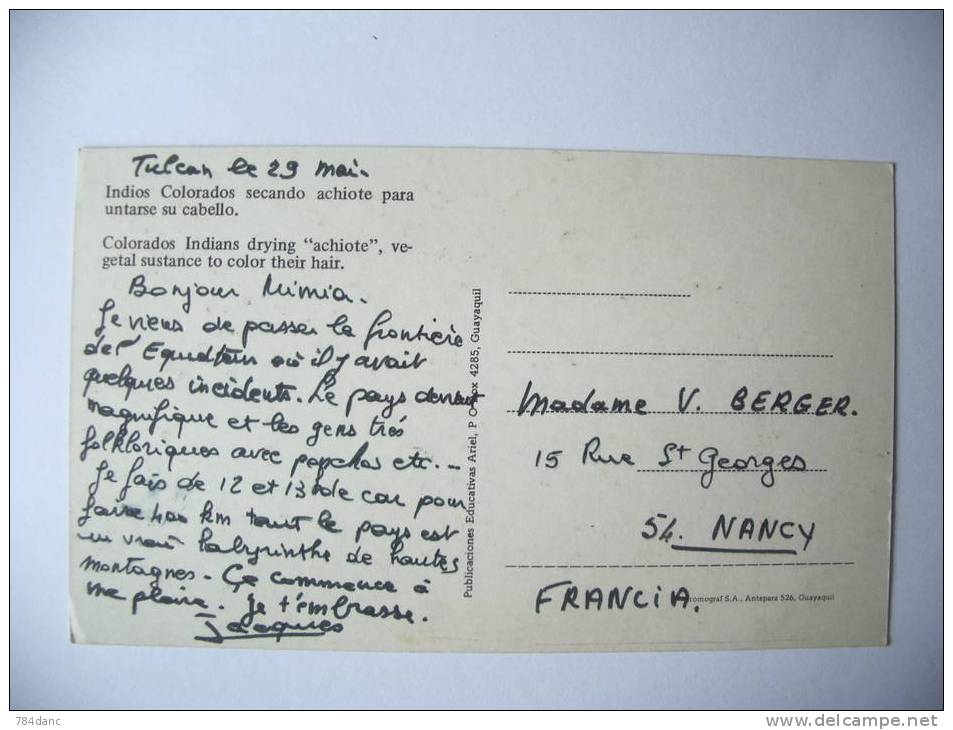 Tulcan le 29 mai.
Indios Colorados secando achiote para
untarse su cabello.
Colorados Indians drying "achiote", ve-
getal sustance to color their hair.
Bonjour Mimia.
Je viens de passer la frontière
de l'Equateur où il y avait
quelques incidents. Le pays devient
magnifique et les gens très
folkloriques avec ponchos etc...
Je fais de 12 et 13 h de car pour
faire 400 km tant le pays est
un vrai labyrinthe de hautes
montagnes. Ça commence à
me plaire. Je t'embrasse.
Jacques
Publicaciones Educativas Ariel, P O Box 4285, Guayaquil
Madame V. BERGER.
15 Rue St Georges
54. NANCY
FRANCIA.
romograf S.A., Antepara 526, Guayaquil
784danc
www.delcampe.net